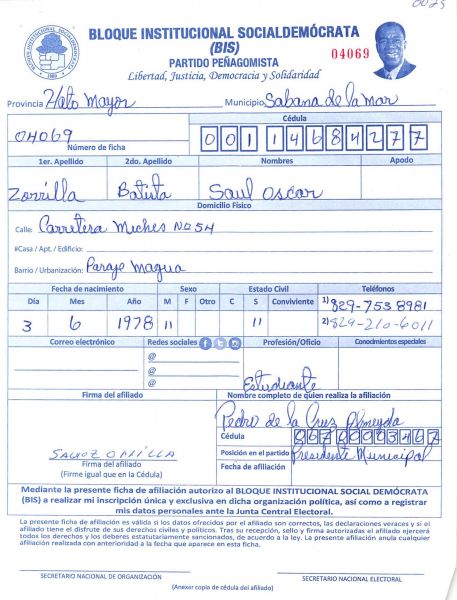 0029
BLOQUE INSTITUCIONAL SOCIALDEMÓCRATA
(BIS)
PARTIDO PEÑAGOMISTA
04069
Libertad, Justicia, Democracia y Solidaridad
Provincia Hato Mayor Municipio Sabana de la Mar
04069
Número de ficha
Cédula
00114684277
1er. Apellido 2do. Apellido Nombres Apodo
Zorrilla Batista Saul Oscar
Domicilio Físico
Calle: Carretera Miches No 54
#Casa / Apt. / Edificio:
Barrio / Urbanización: Paraje Magua
Fecha de nacimiento Sexo Estado Civil Teléfonos
Día Mes Año M F Otro C S Conviviente 1) 829-753 8981
3 6 1978 11 11 2) 829-210-6011
Correo electrónico Redes sociales Profesión/Oficio Conocimientos especiales
@
@
@
Estudiante
Firma del afiliado Nombre completo de quien realiza la afiliación
Pedro de la Cruz Almeyda
Cédula
Posición en el partido Presidente Municipal
Fecha de afiliación
Firma del afiliado
(Firme igual que en la Cédula)
Mediante la presente ficha de afiliación autorizo al BLOQUE INSTITUCIONAL SOCIAL DEMÓCRATA
(BIS) a realizar mi inscripción única y exclusiva en dicha organización política, así como a registrar
mis datos personales ante la Junta Central Electoral.
La presente ficha de afiliación es válida si los datos ofrecidos por el afiliado son correctos, las declaraciones veraces y si el
afiliado tiene el disfrute de sus derechos civiles y políticos. Tras su recepción, sello y firma autorizados el afiliado ejercerá
todos los derechos y los deberes estatutariamente sancionados, de acuerdo a la ley. La presente afiliación anula cualquier
afiliación realizada con anterioridad a la fecha que aparece en esta ficha.
SECRETARIO NACIONAL DE ORGANIZACIÓN SECRETARIO NACIONAL ELECTORAL
(Anexar copia de cédula del afiliado)